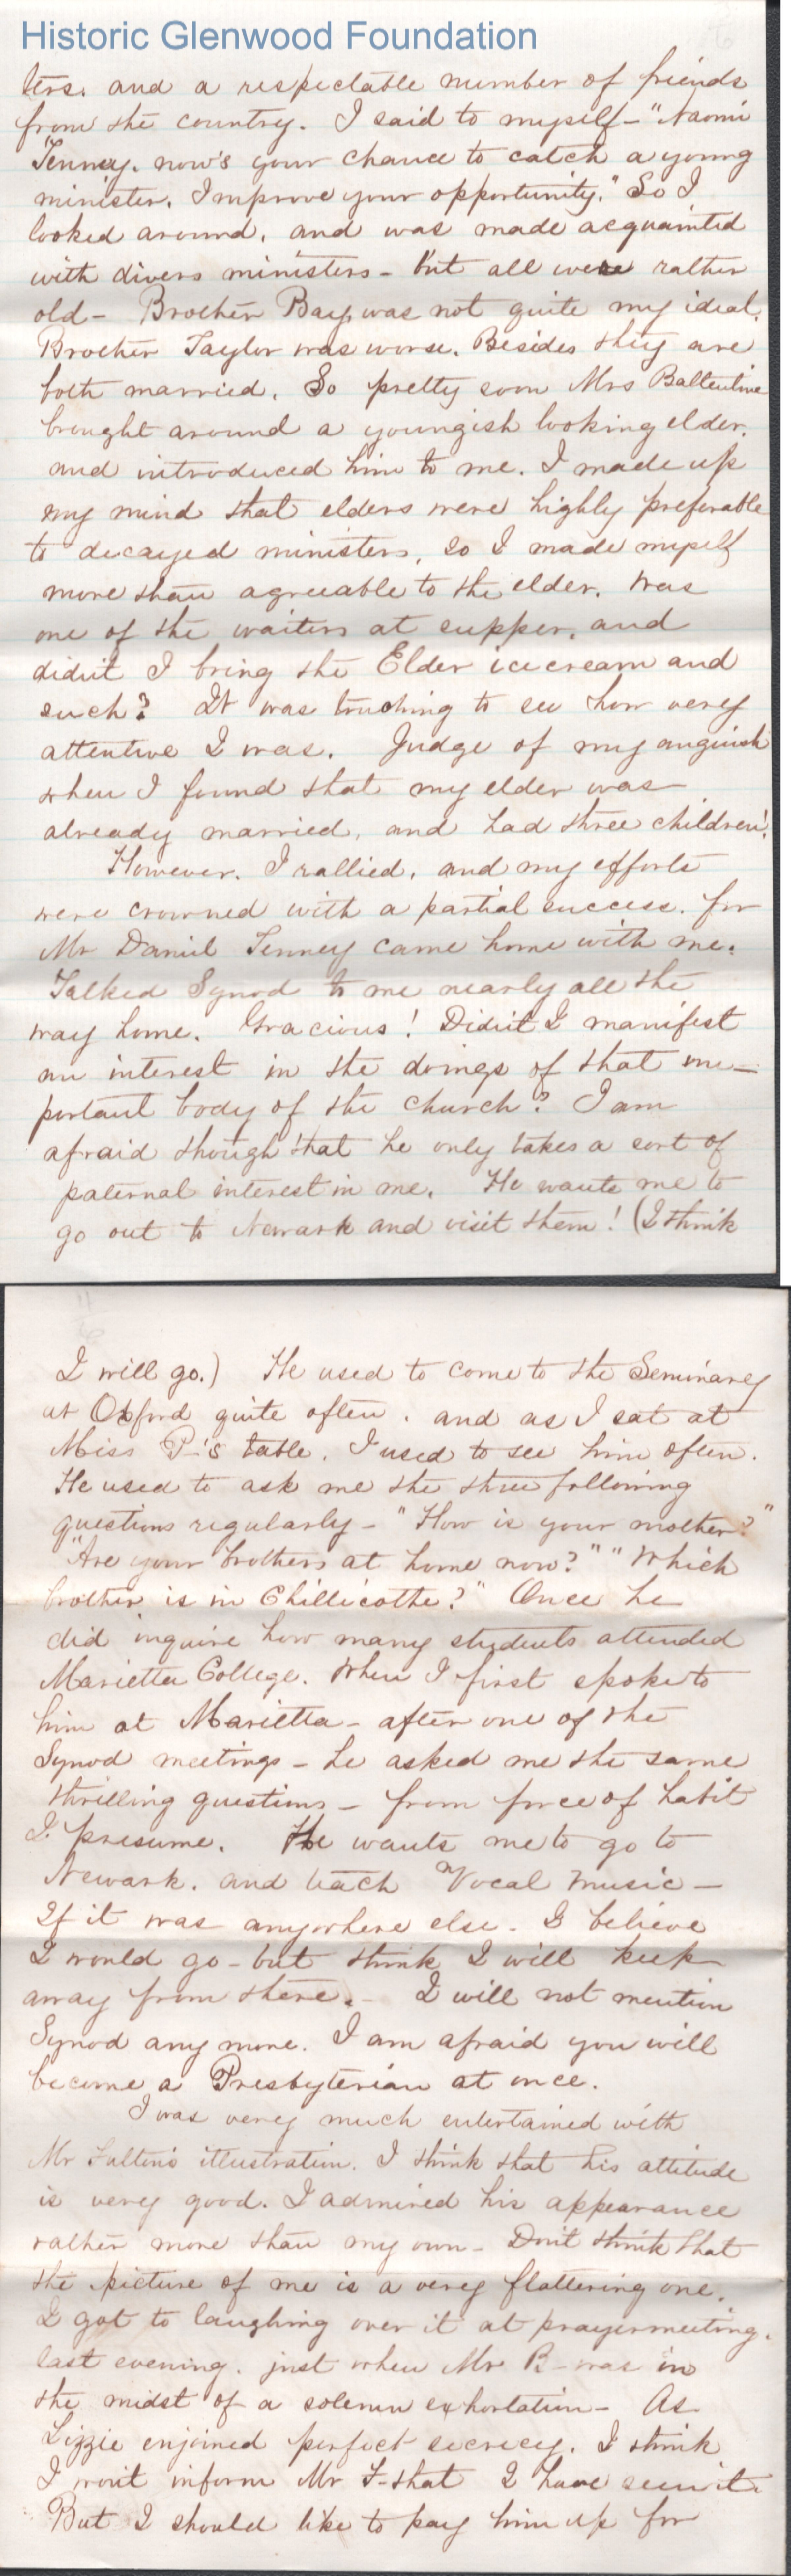 Historic Glenwood Foundation
ters. and a respectable number of friends
from the country. I said to myself - "Naomi
Tenney. now's your chance to catch a young
minister. Improve your opportunity." So I
looked around, and was made acquainted
with divers ministers - but all were rather
old - Brother Bay was not quite my ideal.
Brother Taylor was worse. Besides they are
both married. So pretty soon Mrs Ballentine
brought around a youngish looking elder.
and introduced him to me. I made up
my mind that elders were highly preferable
to decayed ministers, so I made myself
more than agreeable to the elder. Was
one of the waiters at supper, and
didn't I bring the Elder icecream and
such? It was touching to see how very
attentive I was. Judge of my anguish
when I found that my elder was
already married, and had three children!
However. I rallied, and my efforts
were crowned with a partial success. for
Mr Daniel Tenney came home with me.
Talked Synod to me nearly all the
way home. Gracious! Didn't I manifest
an interest in the doings of that im-
portant body of the church? I am
afraid though that he only takes a sort of
paternal interest in me. He wants me to
go out to Newark and visit them! (I think
I will go.) He used to come to the Seminary
at Oxford quite often. and as I sat at
Miss P-'s table. I used to see him often.
He used to ask me the three following
questions regularly - "How is your mother?"
"Are your brothers at home now?" "Which
brother is in Chillicothe?" Once he
did inquire how many students attended
Marietta College. When I first spoke to
him at Marietta - after one of the
Synod meetings - he asked me the same
thrilling questions - from force of habit
I presume. He wants me to go to
Newark. and teach Vocal Music -
If it was anywhere else - I believe
I would go - but think I will keep
away from there. - I will not mention
Synod any more. I am afraid you will
become a Presbyterian at once.
I was very much entertained with
Mr illustration. I think that his attitude
is very good. I admired his appearance
rather more than my own - Don't think that
the picture of me is a very flattering one.
I got to laughing over it at prayermeeting.
last evening. just when Mr B - was in
the midst of a solemn exhortation - As
Lizzie enjoined perfect secrecy. I think
I won't inform Mr F - that I have seen it.
But I should like to pay him up for